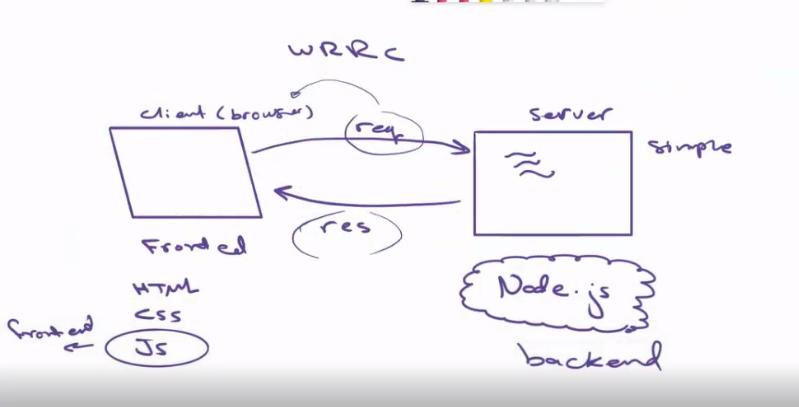 WRRC
client (browser)
req
server
simple
res
Fronted
HTML
CSS
JS
frontend
Node.js
backend